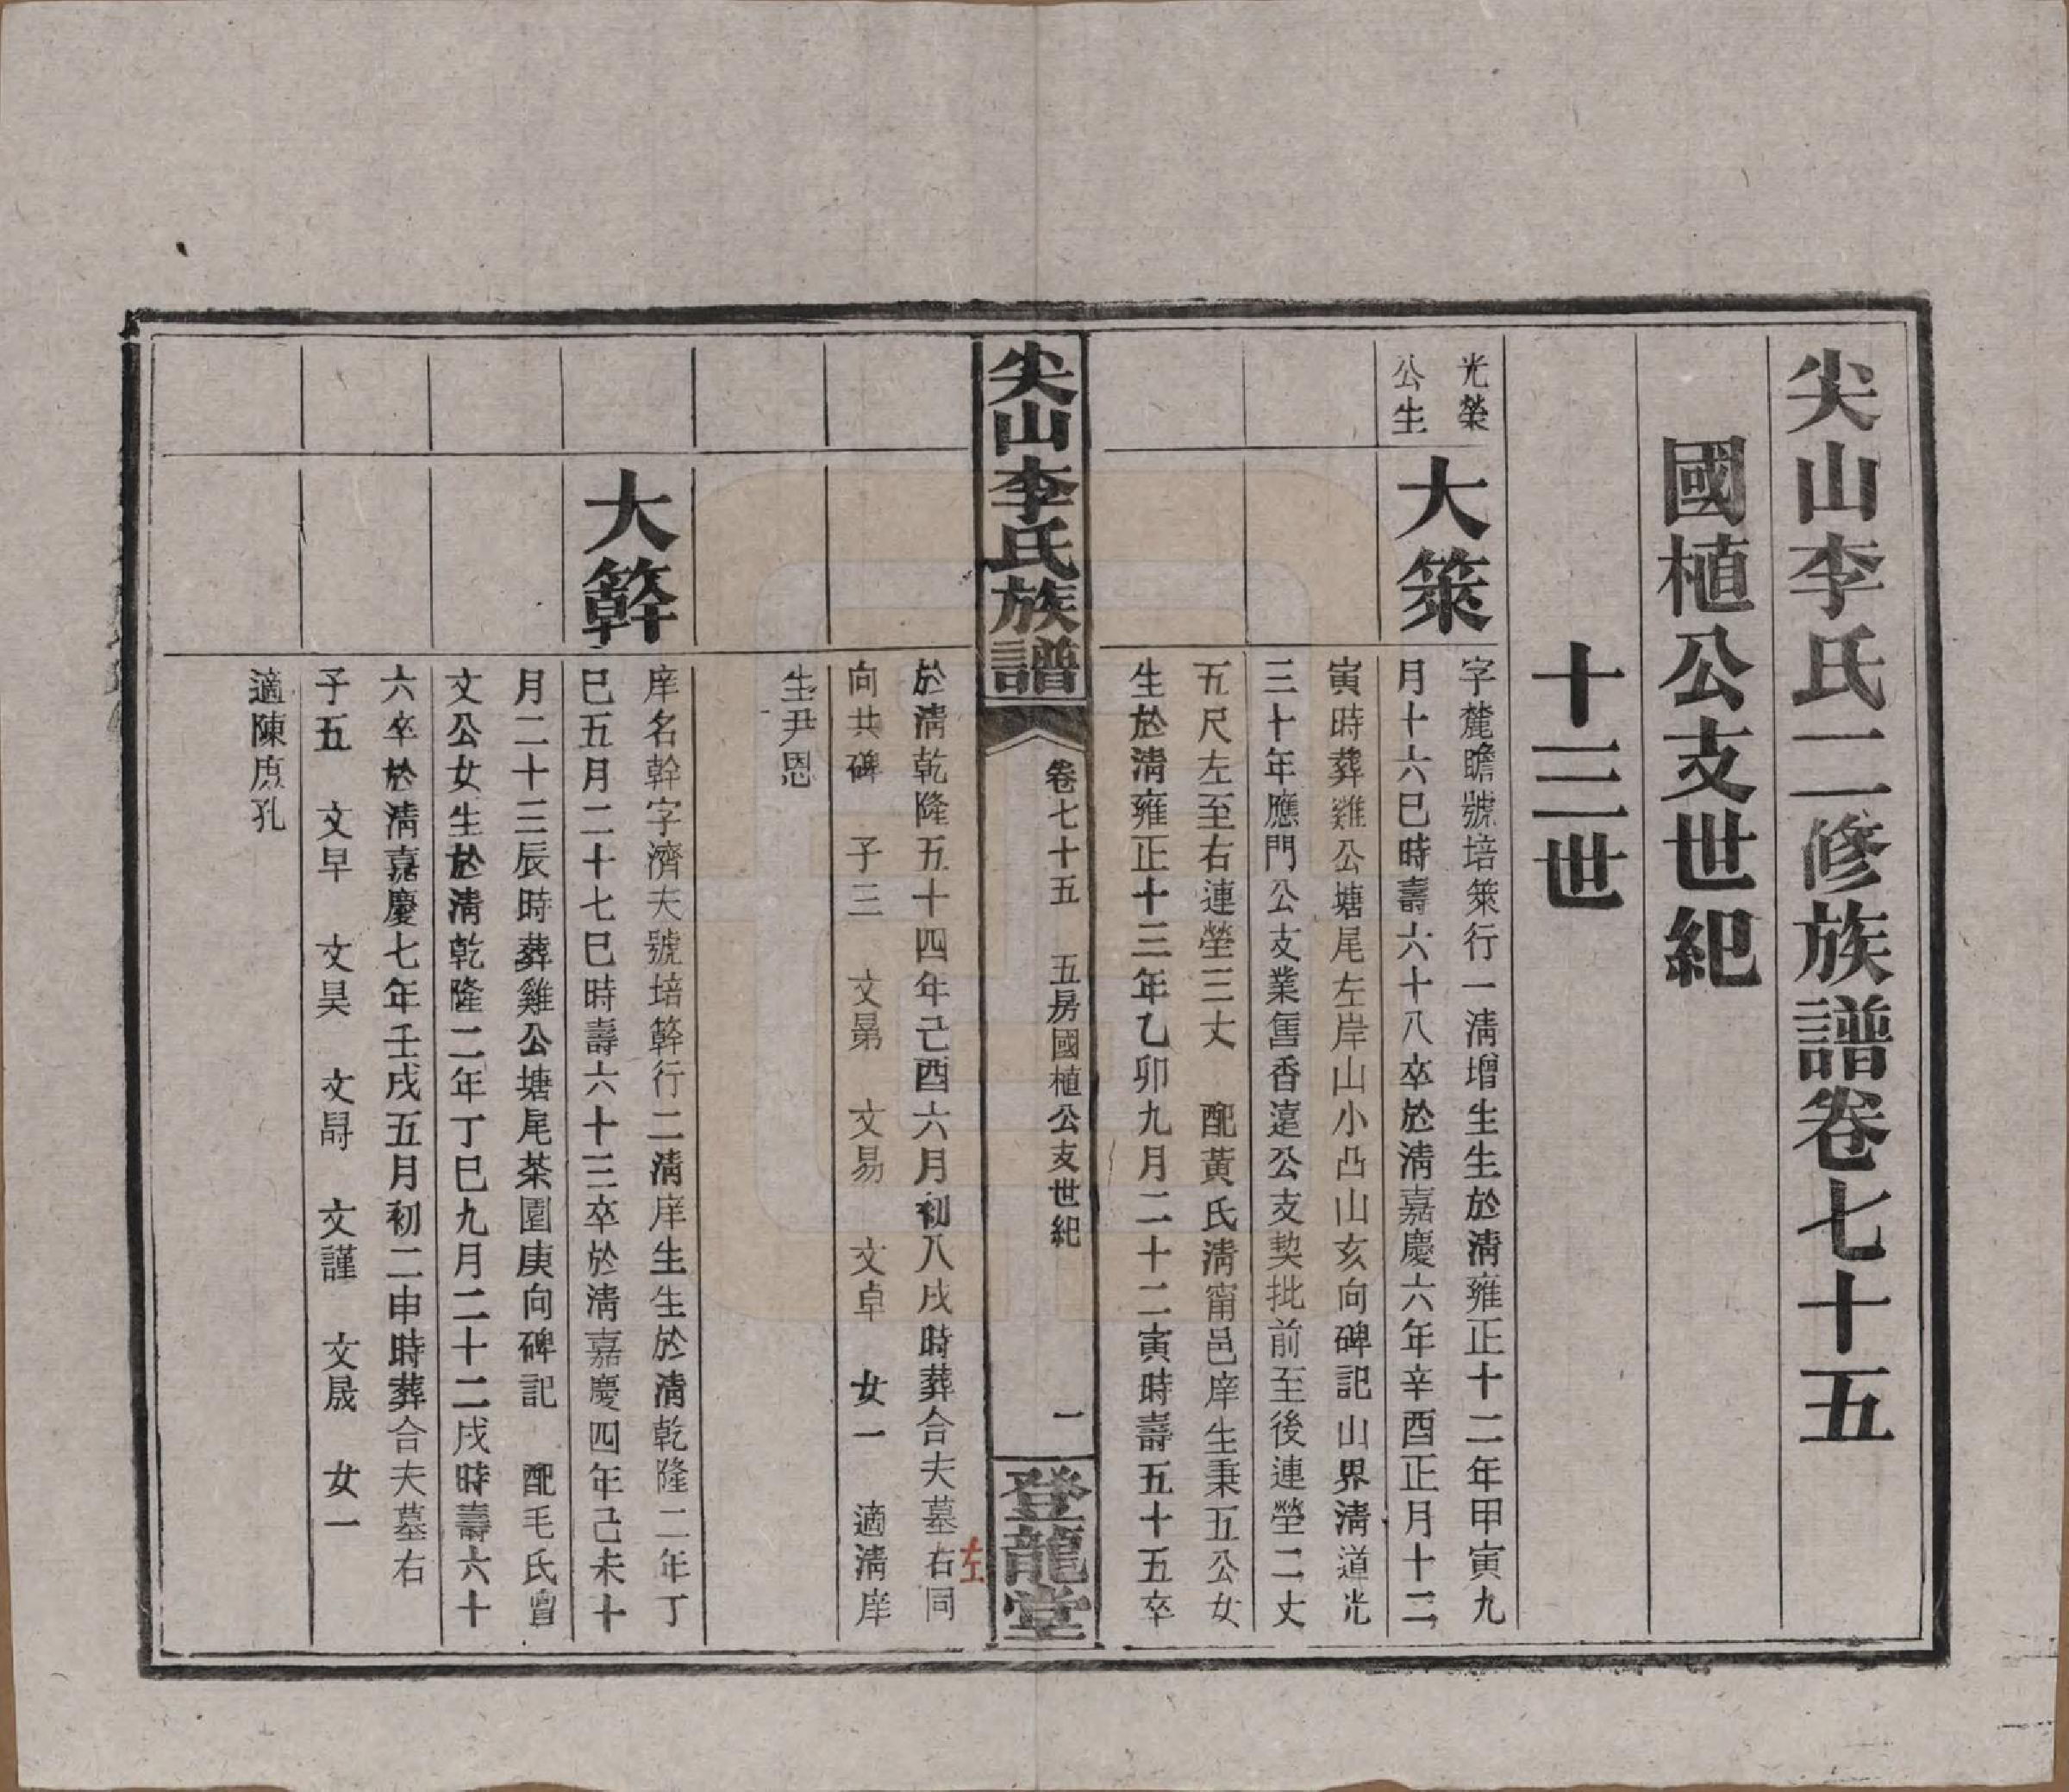 尖山李氏二修族譜卷七十五
國植公支世紀
十三世
光榮
公生
大策
字麓瞻號培策行一淸增生生於淸雍正十二年甲寅九
月十六巳時壽六十八卒於淸嘉慶六年辛酉正月十二
寅時葬雞公塘尾左岸山小凸山亥向碑記山界淸道光
三十年應門公支業售香蓮公支契批前至後連塋二丈
五尺左至右連塋三丈　配黃氏淸甯邑庠生秉五公女
生於淸雍正十三年乙卯九月二十二寅時壽五十五卒
尖山李氏族譜
卷七十五　五房國植公支世紀
一
登龍堂
於淸乾隆五十四年己酉六月初八戌時葬合夫墓右同
左
向共碑　子三　文㫕　文易　文卓　女一　適淸庠
生尹恩
大簳
庠名幹字濟夫號培簳行二淸庠生生於淸乾隆二年丁
巳五月二十七巳時壽六十三卒於淸嘉慶四年己未十
月二十三辰時葬雞公塘尾茶園庚向碑記　配毛氏曾
文公女生於淸乾隆二年丁巳九月二十二戌時壽六十
六卒於淸嘉慶七年壬戌五月初二申時葬合夫墓右
子五　文早　文昊　文㝵　文謹　文晟　女一
適陳庻孔